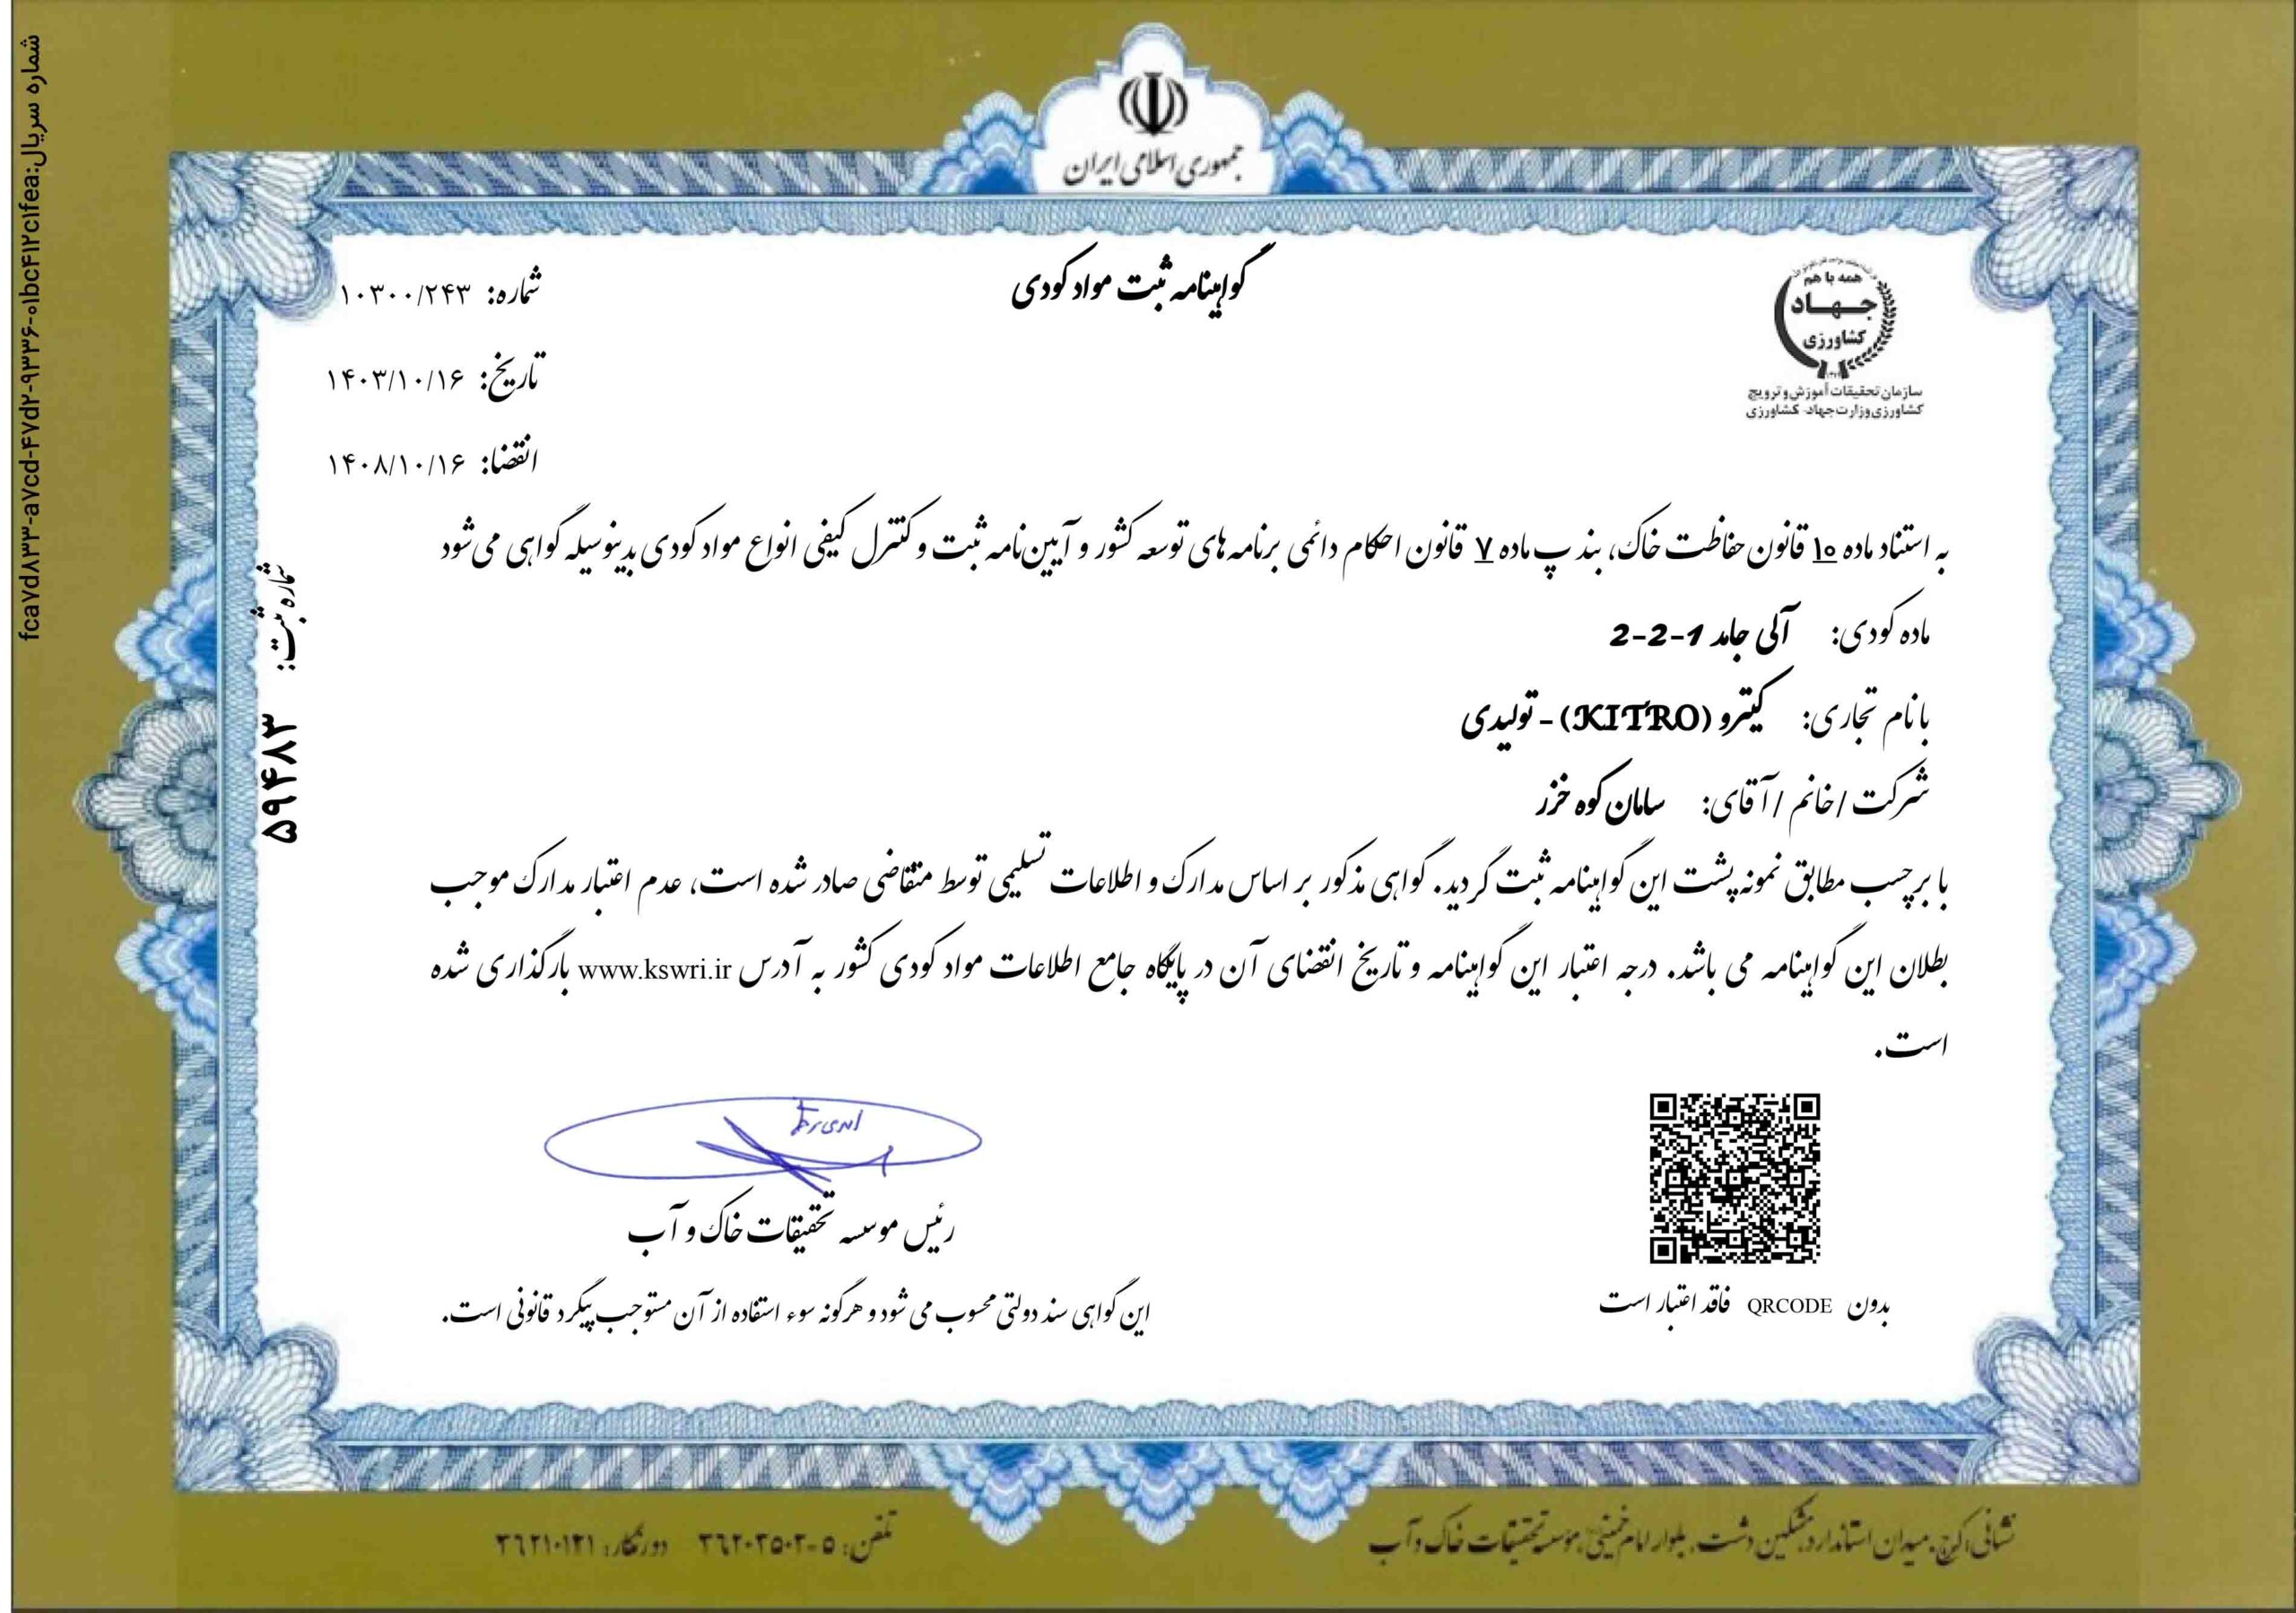 جمهوری اسلامی ایران
همه با هم
جهاد
کشاورزی
سازمان تحقیقات آموزش و ترویج
کشاورزی وزارت جهاد کشاورزی
گواهینامه ثبت مواد کودی
شماره: ۱۰۳۰۰/۲۴۳
تاریخ: ۱۴۰۳/۱۰/۱۶
انقضا: ۱۴۰۸/۱۰/۱۶
به استناد ماده ۱۰ قانون حفاظت خاک، بند پ ماده ۷ قانون احکام دائمی برنامه های توسعه کشور و آیین نامه ثبت و کنترل کیفی انواع مواد کودی بدینوسیله گواهی می شود
ماده کودی: آلی جامد 1-2-2
با نام تجاری: کیترو (KITRO) - تولیدی
شرکت / خانم / آقای: سامان کوه خزر
با برچسب مطابق نمونه پشت این گواهینامه ثبت گردید. گواهی مذکور بر اساس مدارک و اطلاعات تسلیمی توسط متقاضی صادر شده است، عدم اعتبار مدارک موجب
بطلان این گواهینامه می باشد. درجه اعتبار این گواهینامه و تاریخ انقضای آن در پایگاه جامع اطلاعات مواد کودی کشور به آدرس www.kswri.ir بارگذاری شده
است.
رئیس موسسه تحقیقات خاک و آب
بدون QRCODE فاقد اعتبار است
این گواهی سند دولتی محسوب می شود و هرگونه سوء استفاده از آن مستوجب پیگرد قانونی است.
شماره ثبت: ۵۹۴۸۳
شماره سریال:fca۷d۸۳۳-a۷cd-۴۷d۲-۹۳۳۶-۰۱bc۴۱۲c۱fea
نشانی: کرج، میدان استاندارد، مشکین دشت، بلوار امام خمینی، موسسه تحقیقات خاک و آب
تلفن: ۵-۳۶۲۰۲۵۰۲ دورنگار: ۳۶۲۱۰۱۲۱